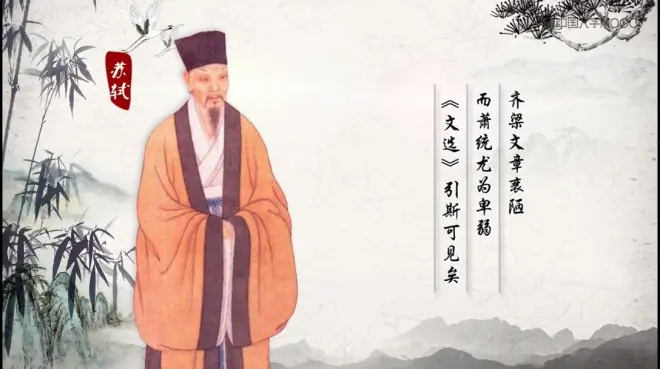 苏轼
中国大学MOOC
齐梁文章衰陋
而萧统尤为卑弱
《文选》引斯可见矣